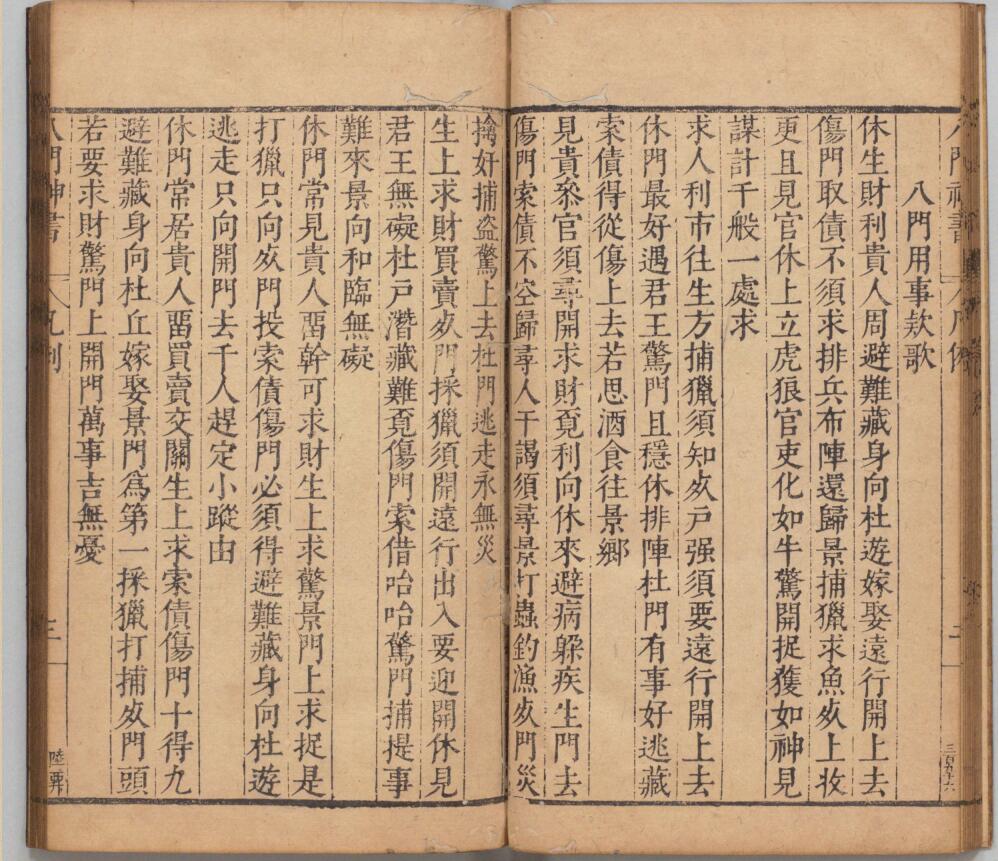 八門用事欵歌
休生財利貴人周避難藏身向杜遊嫁娶遠行開上去
傷門取債不須求排兵布陣還歸景捕獵求魚𣦸上收
更且見官休上立虎狼官吏化如牛驚開捉獲如神見
謀計千般一處求
求人利市往生方捕獵須知𣦸戸强須要遠行開上去
休門最好遇君王驚門且穩休排陣杜門有事好逃藏
索債得從傷上去若思酒食往景鄉
見貴叅官須尋開求財覔利向休來避病躱疾生門去
傷門索債不空歸尋人干謁須尋景打蟲釣漁𣦸門災
擒奸捕盗驚上去杜門逃走永無災
生上求財買賣𣦸門採獵須開遠行出入要迎開休見
君王無礙杜戸潛藏難覔傷門索借咍咍驚門捕提事
難來景向和臨無礙
休門常見貴人畱幹可求財生上求驚景門上求捉是
打獵只向𣦸門投索債傷門必須得避難藏身向杜遊
逃走只向開門去千人趕定小蹤由
休門常居貴人畱買賣交關生上求索債傷門十得九
避難藏身向杜丘嫁娶景門爲第一採獵打捕𣦸門頭
若要求財驚門上開門萬事吉無憂
八門神書
三